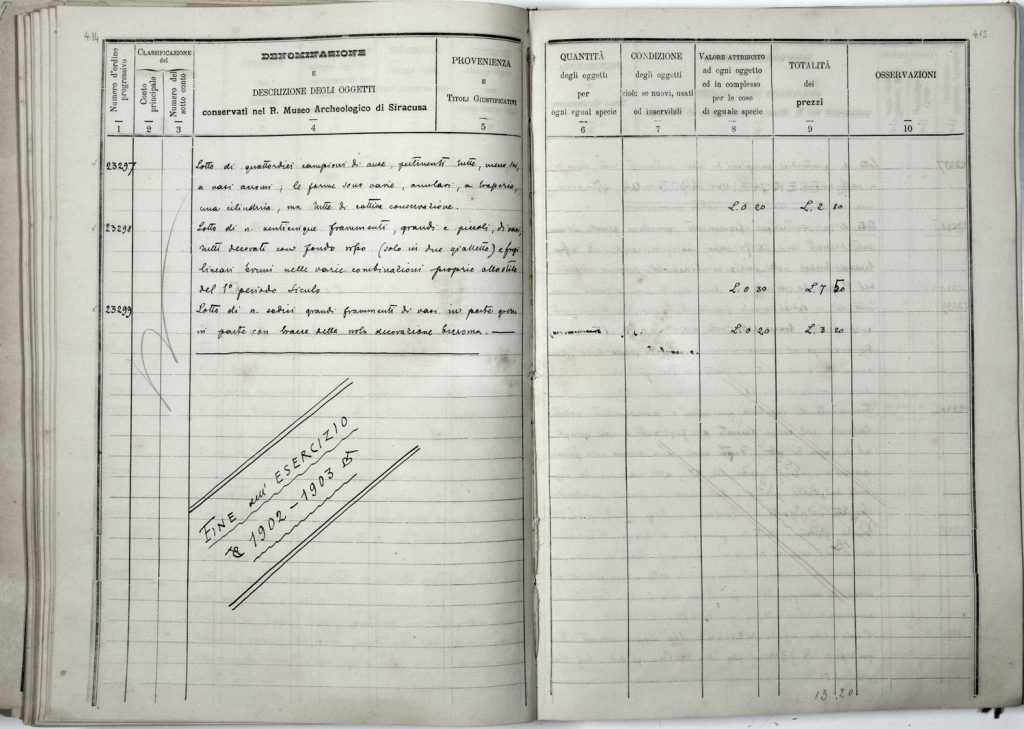 414
Numero d'ordine progressivo
CLASSIFICAZIONE
del
Conto principale
Numero del sotto conto
DENOMINAZIONE
E
DESCRIZIONE DEGLI OGGETTI
conservati nel R. Museo Archeologico di Siracusa
PROVENIENZA
E
TITOLI GIUSTIFICATIVI
1
2
3
4
5
23297
Lotto di quattordici campioni di anse, pertinenti tutte, meno
a vasi aromi; le forme sono varie, anulari, a
una cilindrica, ma tutte di cattiva conservazione.
23298
Lotto di n. venticinque frammenti, grandi e piccoli, di vasi
tutti decorati con fondo rosso (solo in due gialletto) e fregi
lineari bruni nelle varie combinazioni proprie allo stile
del 1° periodo Siculo
23299
Lotto di n. sedici grandi frammenti di vasi in parte grezzi
in parte con tracce della sola decorazione bruna.
FINE dell' ESERCIZIO
1902-1903
415
QUANTITÀ
degli oggetti
per
ogni egual specie
CONDIZIONE
degli oggetti
cioè: se nuovi, usati
od inservibili
VALORE ATTRIBUITO
ad ogni oggetto
ed in complesso
per le cose
di eguale specie
TOTALITÀ
dei
prezzi
OSSERVAZIONI
6
7
8
9
10
L. 0 20
L. 2 80
L. 0 30
L. 7 50
L. 0 20
L. 3 20
13.20